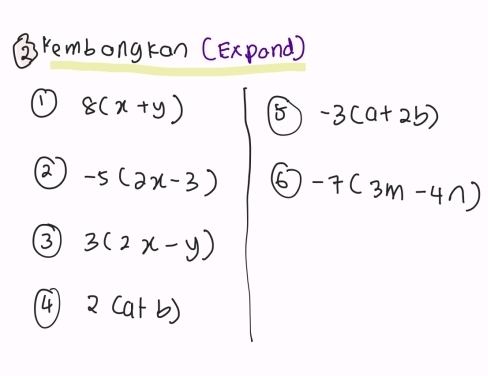 2 Kembangkan (Expand)
1 8(x + y)
2 -5(2x - 3)
3 3(2x - y)
4 2(a + b)
5 -3(a + 2b)
6 -7(3m - 4n)